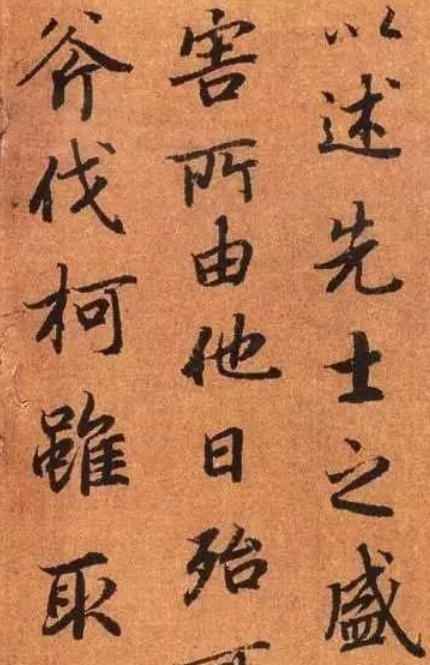 以述先士之盛
害所由他日殆
斧伐柯雖取